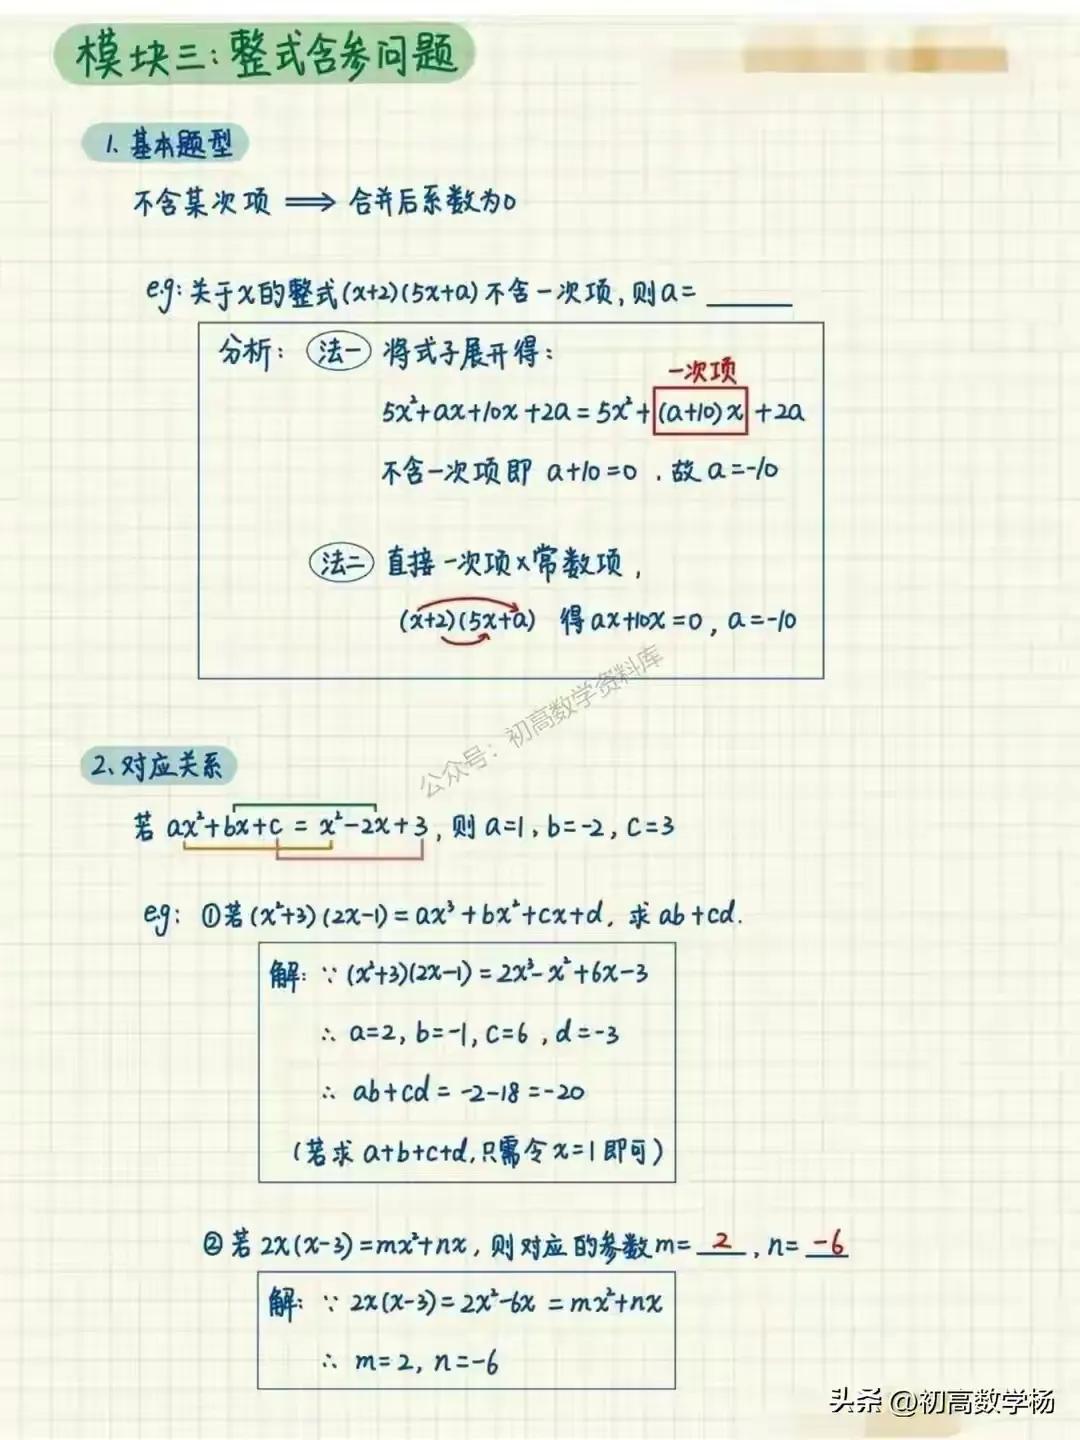 模块三:整式含参问题
1、基本题型
不含某次项 ⟹ 合并后系数为0
e.g:关于x的整式(x+2)(5x+a)不含一次项,则a=______
分析: 法一 将式子展开得:
一次项
5x²+ax+10x+2a=5x²+(a+10)x+2a
不含一次项即 a+10=0 .故a=-10
法二 直接一次项×常数项,
(x+2)(5x+a) 得ax+10x=0, a=-10
公众号:初高数学资料库
2、对应关系
若 ax²+bx+c = x²-2x+3, 则a=1, b=-2, c=3
e.g: ①若(x²+3)(2x-1)=ax³+bx²+cx+d, 求ab+cd.
解: ∵(x²+3)(2x-1)=2x³-x²+6x-3
∴ a=2, b=-1, c=6, d=-3
∴ ab+cd = -2-18=-20
(若求a+b+c+d,只需令x=1即可)
②若2x(x-3)=mx²+nx, 则对应的参数m= 2 , n= -6
解: ∵ 2x(x-3)=2x²-6x =mx²+nx
∴ m=2, n=-6
头条 @初高数学杨